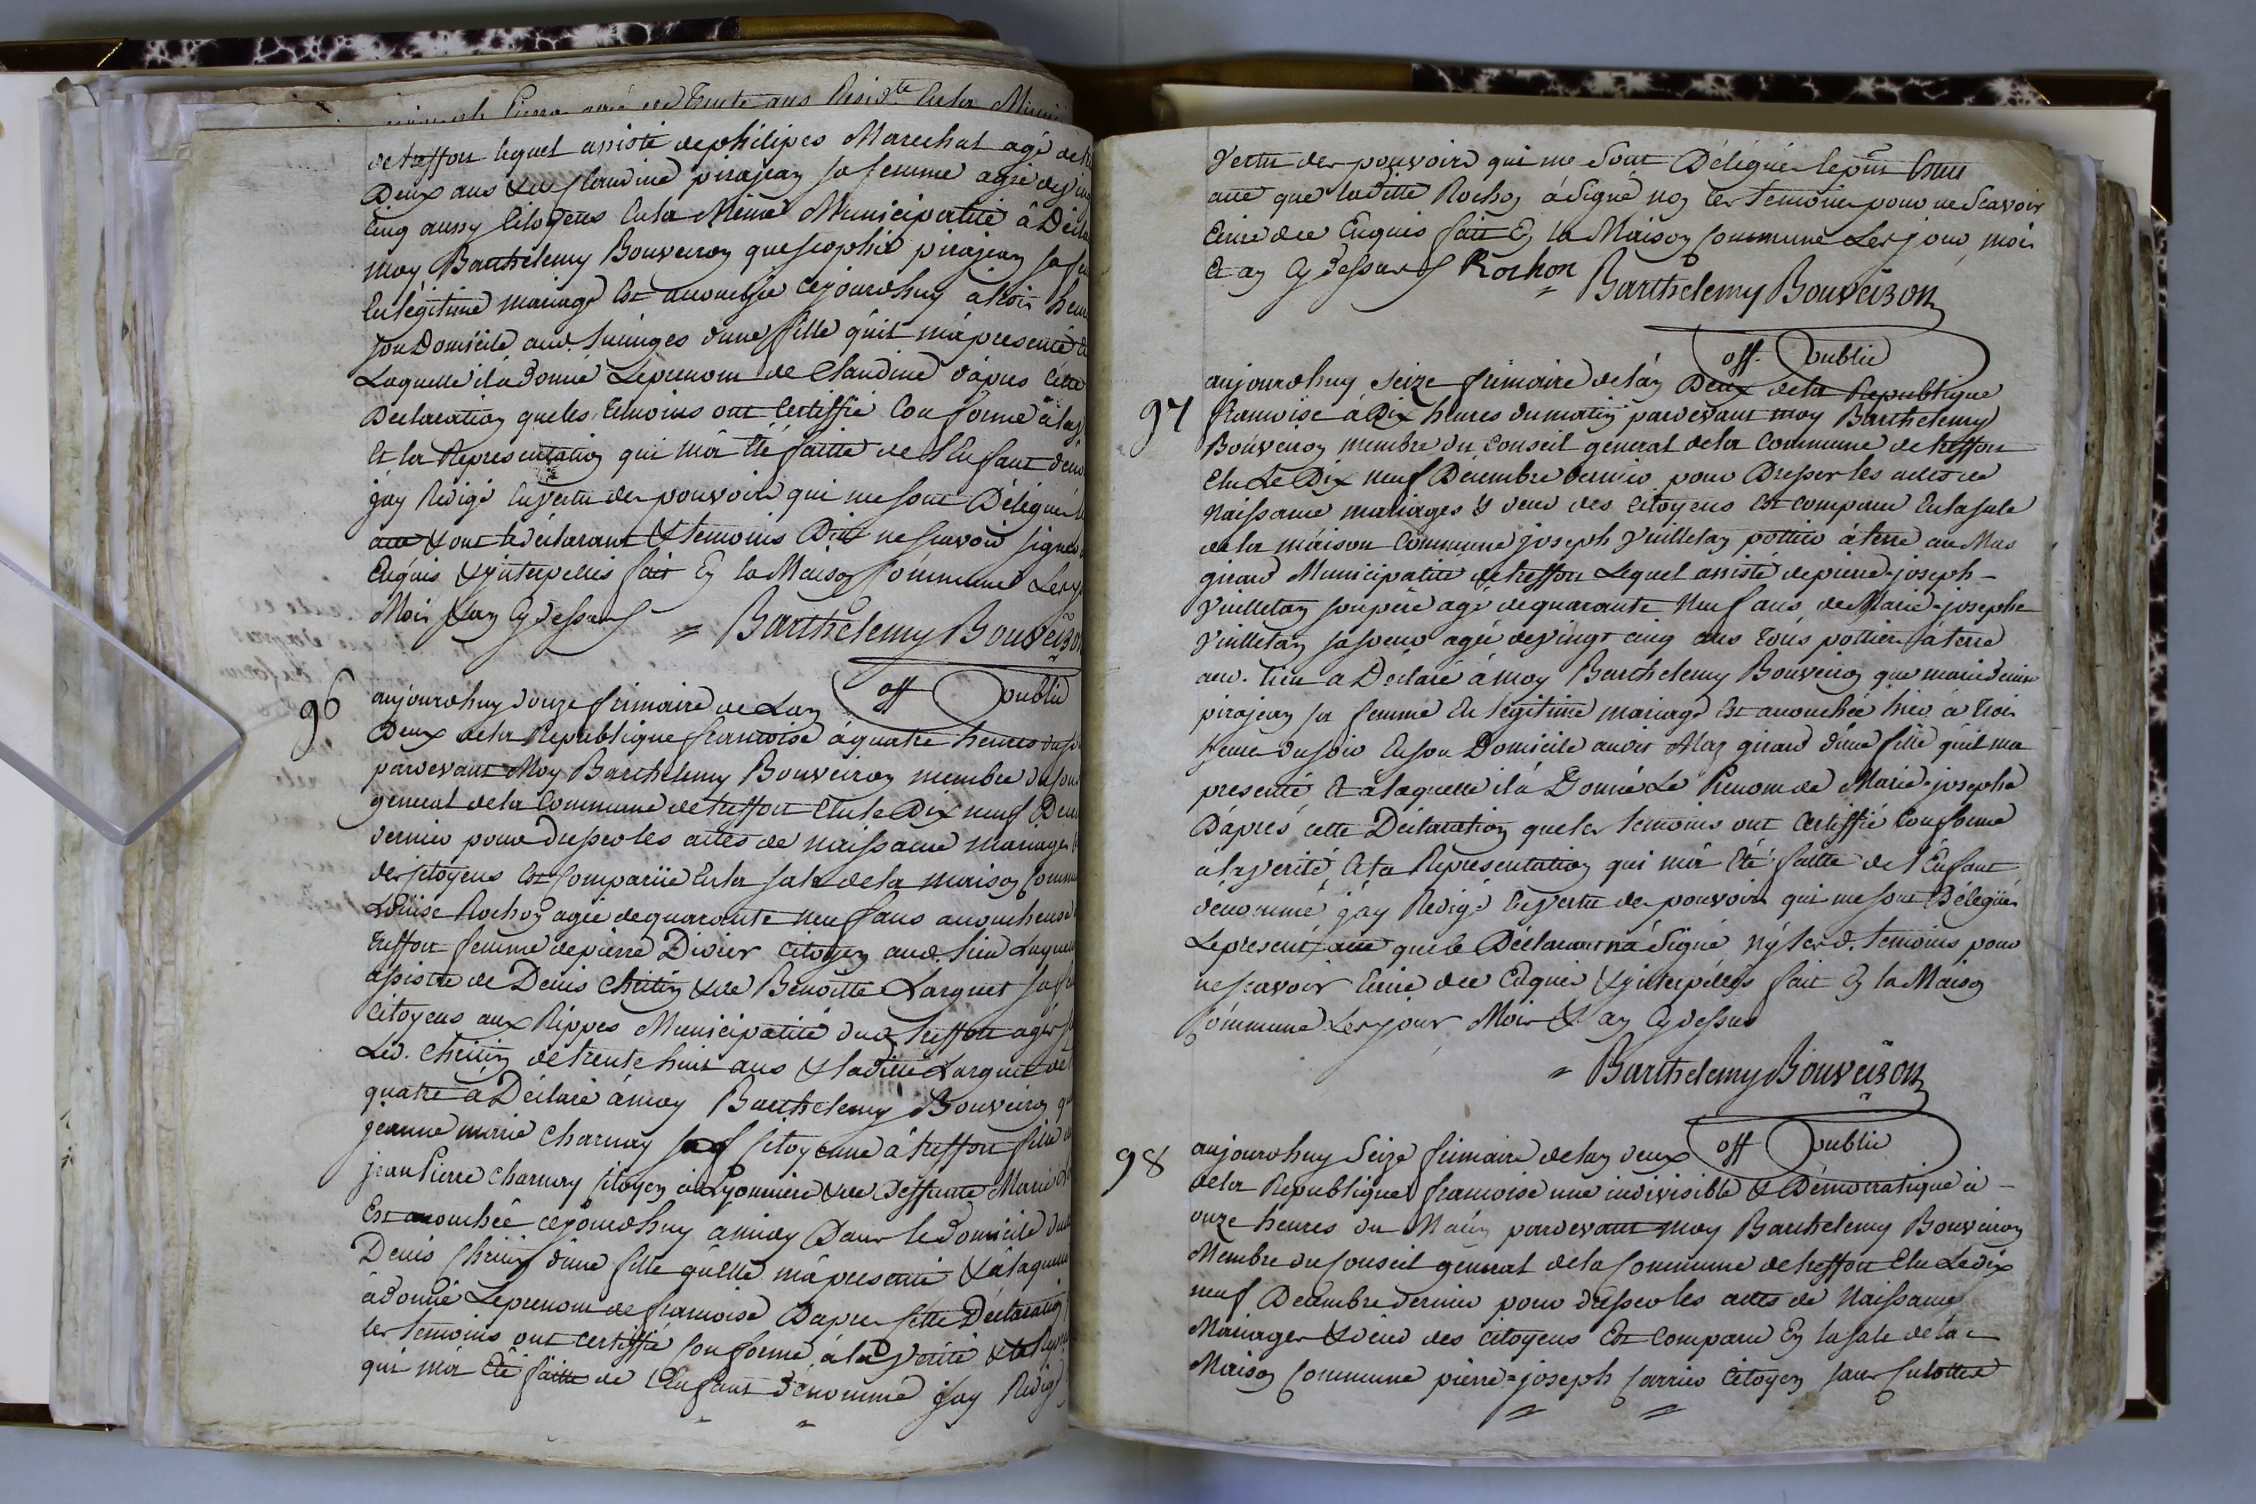 de treffort lequel assisté de philipes Marechal agé de
Deux ans & de Claudine pirajean sa femme agée de vingt
Cinq aussy Citoyens En la Même Municipalité à Décla
moy Barthelemy Bouveiron que josephte pirajean sa
En légitime mariage Est accouchée cejourdhuy à trois heu
son Domicile aud. d'une fille qu'il m'a presenté
Laquelle il à donné Le prenom de Claudine d'après Cette
Declaration que les temoins ont Certiffié Conforme à la
Et la Representation qui m'à Eté faitte de l'Enfant deno
j'ay Redigé En vertu des pouvoirs qui me sont Délegués
acte & ont le déclarant & temoins Dit ne scavoir signer
Enquis & jnterpellés fait En la Maison Commune Les
Mois & an Cy dessus
= Barthelemy Bouveiron
off public
96 aujourdhuy douze frimaire de Lan
Deux de la Republique francoise à quatre heures du s
pardevant Moy Barthelemy Bouveiron membre du Cons
general de la Commune de treffort Elu le Dix neuf Dece
dernier pour dresser les actes de naissance mariages
des Citoyens Est Comparüe En la sale de la maison Comm
Loüise Rochon agée de quarante neuf ans accoucheuse
treffort femme de pierre Divier Citoyen aud. lieu Laquelle
assistée de Denis Chritin & de Benoitte Larguet sa fe
Citoyens aux Rippes Municipalité dud. treffort agés
Led. Chritin de trente huit ans & laditte Larguet de
quatre à Déclaré à moy Barthelemy Bouveiron q
jeanne marie Charnay Citoyenne à treffort fille
jean Pierre Charnay Citoyen à Lyonniere & de Deffunte Marie
Est accouchée cejourdhuy a midy Dans le Domicile du
Denis Chritin d'une fille qu'elle m'à presenté & à laquelle
à donné Le prenom de francoise Dapres Cette Déclaration
les temoins ont certiffié Conforme à la Verité & la Repr
qui m'à Eté faitte de l'Enfant dénommé j'ay Redigé
vertu des pouvoirs qui me sont Délégués le pnt
acte que laditte Rochon à signé non les temoins pour ne Scavoir
Ecrire de ce Enquis fait En la Maison Commune Les jour, mois
Et an Cy dessus Rochon
= Barthelemy Bouveiron
off. public
97 aujourdhuy seize frimaire de lan Deux de la Republique
francoise à Dix heures du matin pardevant moy Barthelemy
Bouveiron membre du Conseil general de la Commune de treffort
Elu Le Dix neuf Décembre dernier pour Dresser les actes de
Naissance mariages & deces des Citoyens Est comparu En la sale
de la maison Commune joseph Vuilletan pottier à terre au Mas
girard Municipalité de treffort Lequel assisté de pierre-joseph-
Vuilletan son père agé de quarante Neuf ans de Marie-josephe
Vuilletan sa soeur agée de vingt cinq ans tous pottiers à terre
aud. lieu a Déclaré à moy Barthelemy Bouveiron que marie denise
pirajean sa femme En légitime mariage Est accouchée hier à trois
heure du soir En son Domicile audit Maz girard d'une fille quil ma
presenté & à laquelle il à Donné Le Prenom de Marie-josephe
D'après cette Déclaration que les temoins ont Certiffié Conforme
à la verité & la Representation qui m'à Eté faitte de l'Enfant
dénommé j'ay Redigé En vertu des pouvoirs qui me sont Délegués
Le present acte que le Déclarant n'a Signé ny les d. temoins pour
ne scavoir Ecrire de ce Enquis & jnterpéllés fait En la Maison
Cómmune Les jour Mois & an Cy dessus
= Barthelemy Bouveiron
off public
98 aujourdhuy Seize frimaire de lan deux
de la Republique francoise une indivisible & Démocratique à -
onze heures du Matin pardevant moy Barthelemy Bouveiron
Membre du Conseil general de la Commune de treffort Elu Le dix
neuf Décembre dernier pour dresser les actes de Naissance
Mariages & déces des citoyens Est Comparu En la sale de la
Maison Commune pierre-joseph Carrier Citoyen sans Culottes
= =